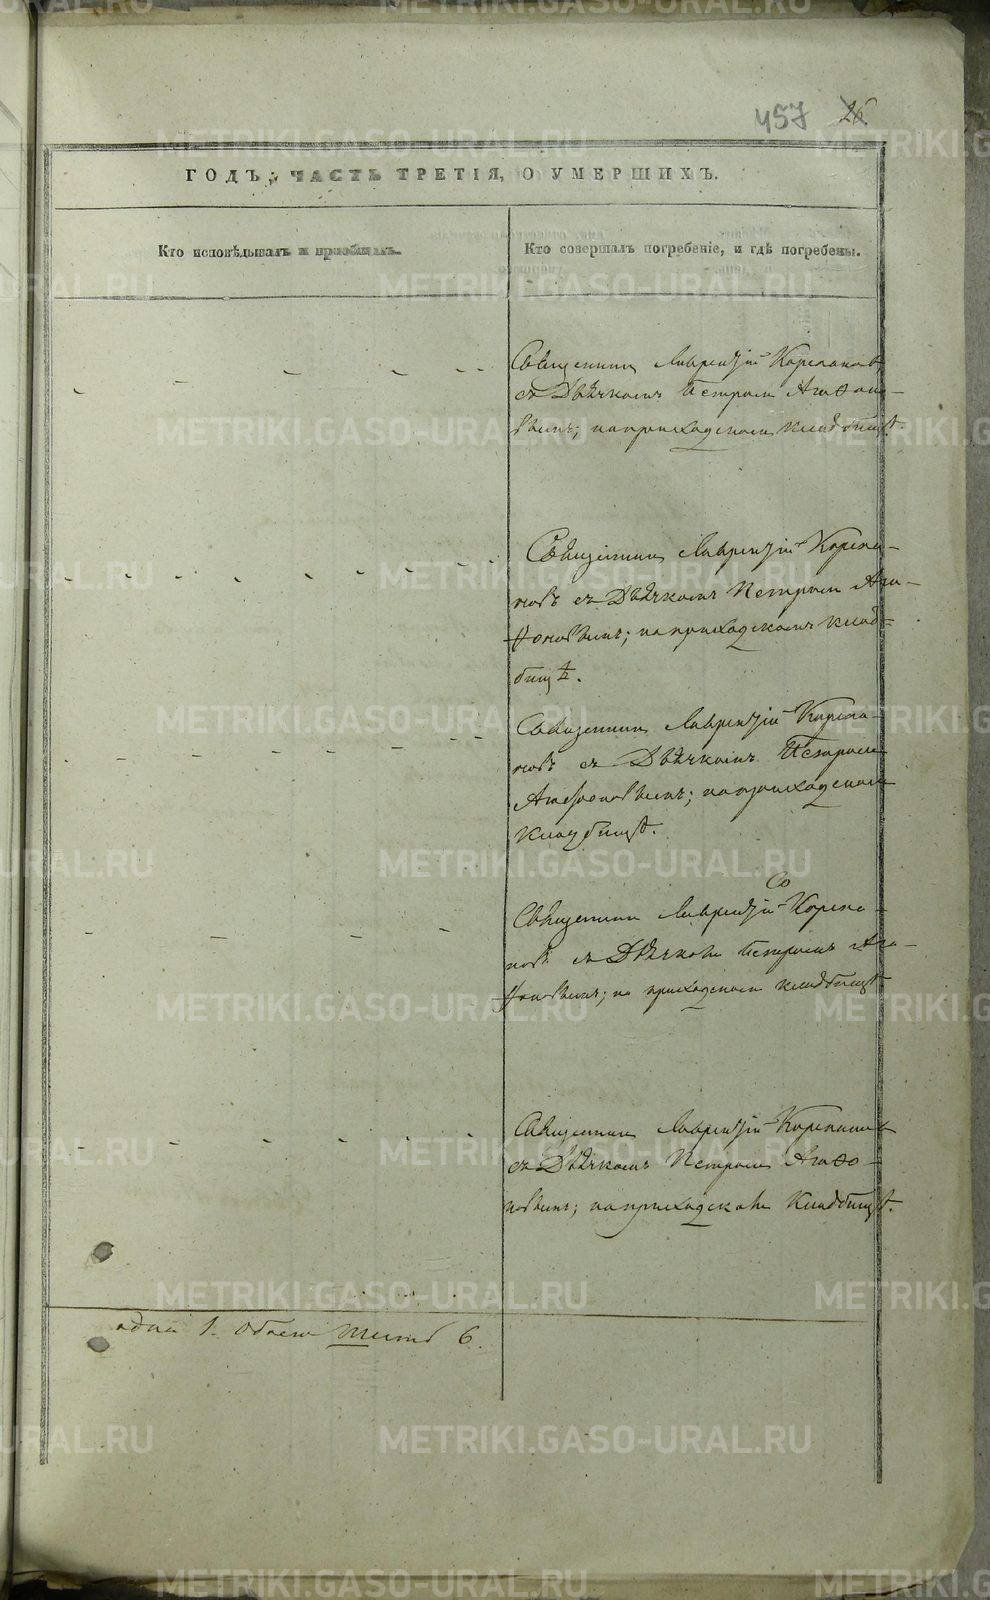 457 26
ГОДЪ, ЧАСТЬ ТРЕТІЯ, О УМЕРШИХЪ.
Кто исповѣдывалъ и пріобщалъ.
Кто совершалъ погребеніе, и гдѣ погребены.
Священникъ Лаврентій Корепановъ
съ Дьячкомъ Петромъ Агаѳоно-
вымъ; на приходскомъ кладбищѣ.
Священникъ Лаврентій Корепа-
новъ съ Дьячкомъ Петромъ Ага-
фоновымъ; на приходскомъ клад-
бищѣ.
Священникъ Лаврентій Корепа-
новъ съ Дьячкомъ Петромъ
Агафоновымъ; на приходскомъ
кладбищѣ.
Священникъ Лаврентій Корепа-
новъ съ Дьячкомъ Петромъ Ага-
фоновымъ; на приходскомъ кладбищѣ.
Священникъ Лаврентій Корепановъ
съ Дьячкомъ Петромъ Агаѳо-
новымъ; на приходскомъ кладбищѣ.
одна 1. Обоего 6.
METRIKI.GASO-URAL.RU